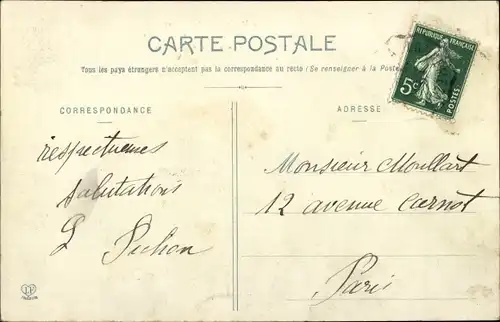 CARTE POSTALE
Tous les pays étrangers n'acceptent pas la correspondance au recto (Se renseigner à la Poste)
REPUBLIQUE FRANÇAISE
5c
POSTES
CORRESPONDANCE
ADRESSE
respectueuses
salutations
Monsieur Moullart
12 avenue Carnot
Paris